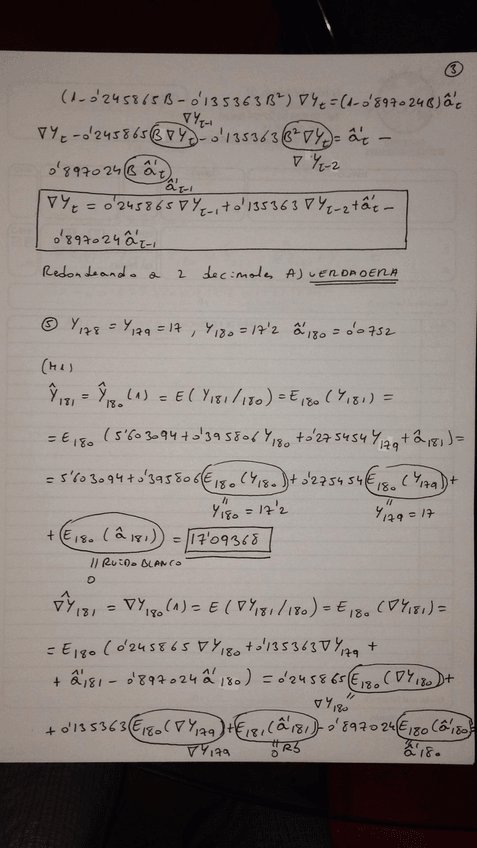 ③
(1-0'245865B-0'135363B²)∇Yt=(1-0'897024B)â't
∇Yt-0'245865(B∇Yt)-0'135363(B²∇Yt)=â't-
∇Yt-1
∇Yt-2
0'897024(Bâ't)
â't-1
∇Yt=0'245865∇Yt-1+0'135363∇Yt-2+â't-
0'897024â't-1
Redondeando a 2 decimales A) VERDADERA
⑤ Y178=Y179=17, Y180=17'2 â'180=0'0752
(M1)
Ŷ181=Ŷ180(1)=E(Y181/180)=E180(Y181)=
=E180(5'603094+0'395806Y180+0'275454Y179+â181)=
=5'603094+0'395806(E180(Y180))+0'275454(E180(Y179))+
"
Y180=17'2
"
Y179=17
+(E180(â181))=17'09368
" RUIDO BLANCO
0
∇Ŷ181=∇Y180(1)=E(∇Y181/180)=E180(∇Y181)=
=E180(0'245865∇Y180+0'135363∇Y179+
+â'181-0'897024â'180)=0'245865(E180(∇Y180))+
∇Y180"
+0'135363(E180(∇Y179))+(E181(â'181))-0'897024(E180(â'180))=
"
∇Y179
" RB
0
"
â'180